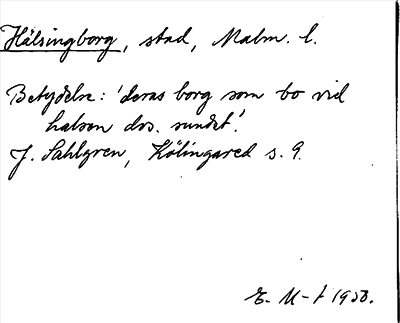 Hälsingborg, stad, Malm. l.
Betydelse: 'deras borg som bo vid
halsen dvs. sundet'.
J. Sahlgren, Kölingared s. 9.
E. M-t 1953.